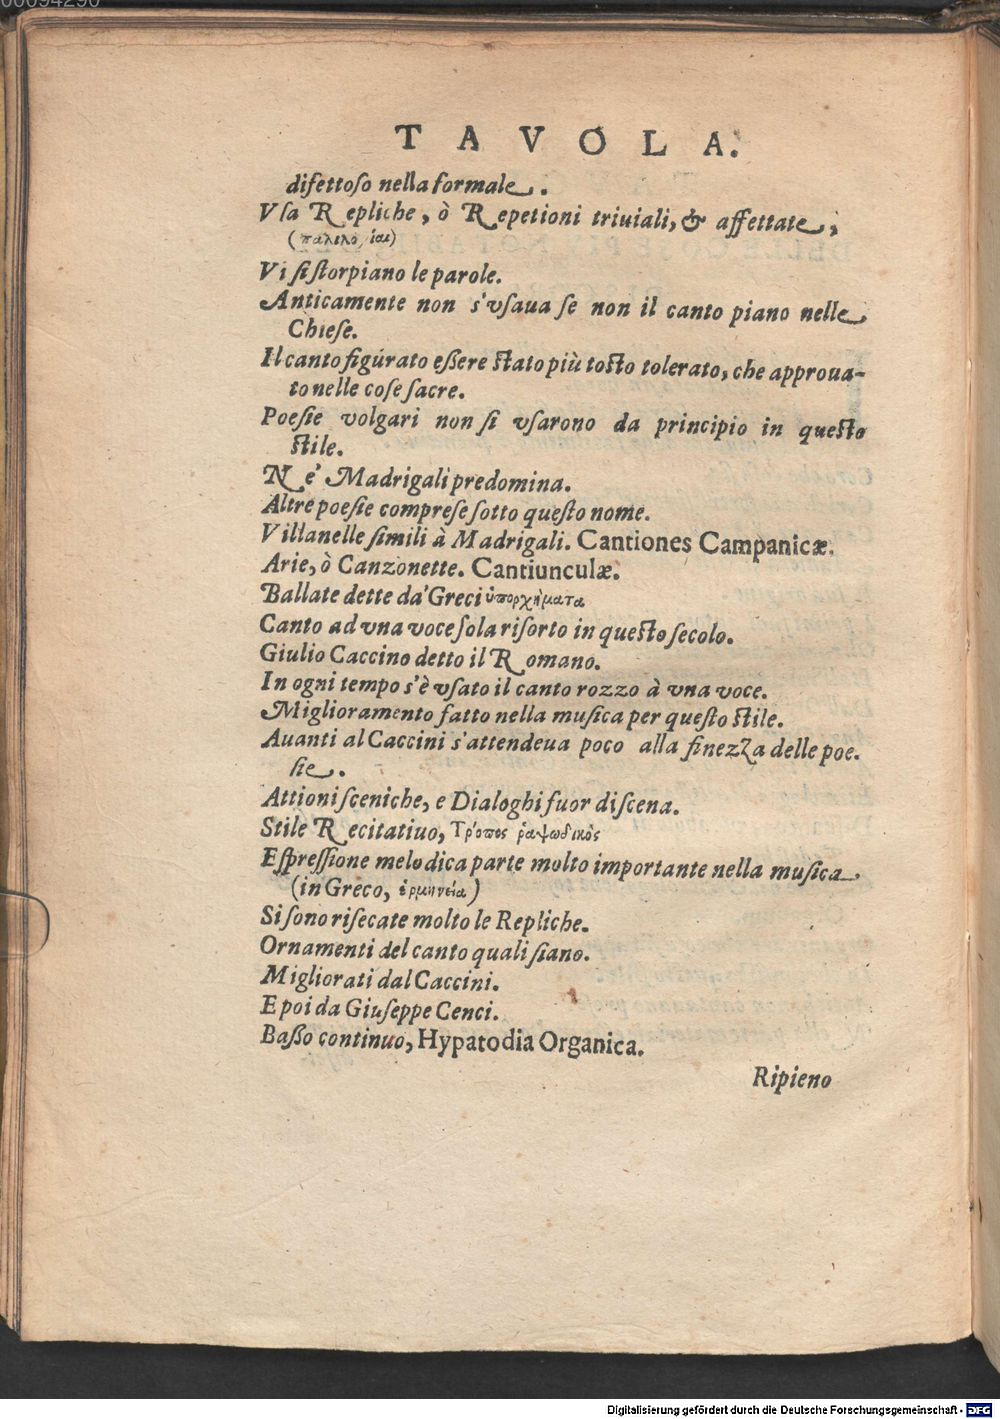 00094290
TAVOLA.
difettoso nella formale.
Vsa Repliche, ò Repetioni triuiali, & affettate,
Vi si storpiano le parole.
Anticamente non s'vsaua se non il canto piano nelle
Chiese.
Il canto figúrato eßere stato più tosto tolerato, che approua-
to nelle cose sacre.
Poesie volgari non si vsarono da principio in questo
stile.
Ne' Madrigali predomina.
Altre poesie comprese sotto questo nome.
Villanelle simili à Madrigali. Cantiones Campanicæ.
Arie, ò Canzonette. Cantiunculæ.
Ballate dette da' Greci ὑπορχήματα
Canto ad vna voce sola risorto in questo secolo.
Giulio Caccino detto il Romano.
In ogni tempo s'è vsato il canto rozzo à vna voce.
Miglioramento fatto nella musica per questo stile.
Auanti al Caccini s'attendeua poco alla finezza delle poe.
sie.
Attioni sceniche, e Dialoghi fuor di scena.
Stile Recitatiuo, Τρόπος ῥαψωδικὸς
Espressione melodica parte molto importante nella musica
(in Greco, ἑρμηνεία)
Si sono risecate molto le Repliche.
Ornamenti del canto quali siano.
Migliorati dal Caccini.
E poi da Giuseppe Cenci.
Baßo continuo, Hypatodia Organica.
Ripieno
Digitalisierung gefördert durch die Deutsche Forschungsgemeinschaft - DFG